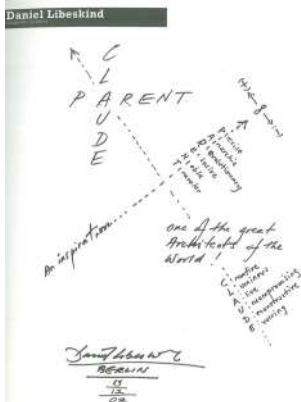 Daniel Libeskind
CLAUDE
PARENT
Precise
Anarchic
Revolutionary
Elusive
Notable
Traveler
An inspiration
one of the great
Architects of the
World!
Creative
Luminous
Alive
Uncompromising
Deconstructive
Daniel Libeskind
BERLIN
12
02